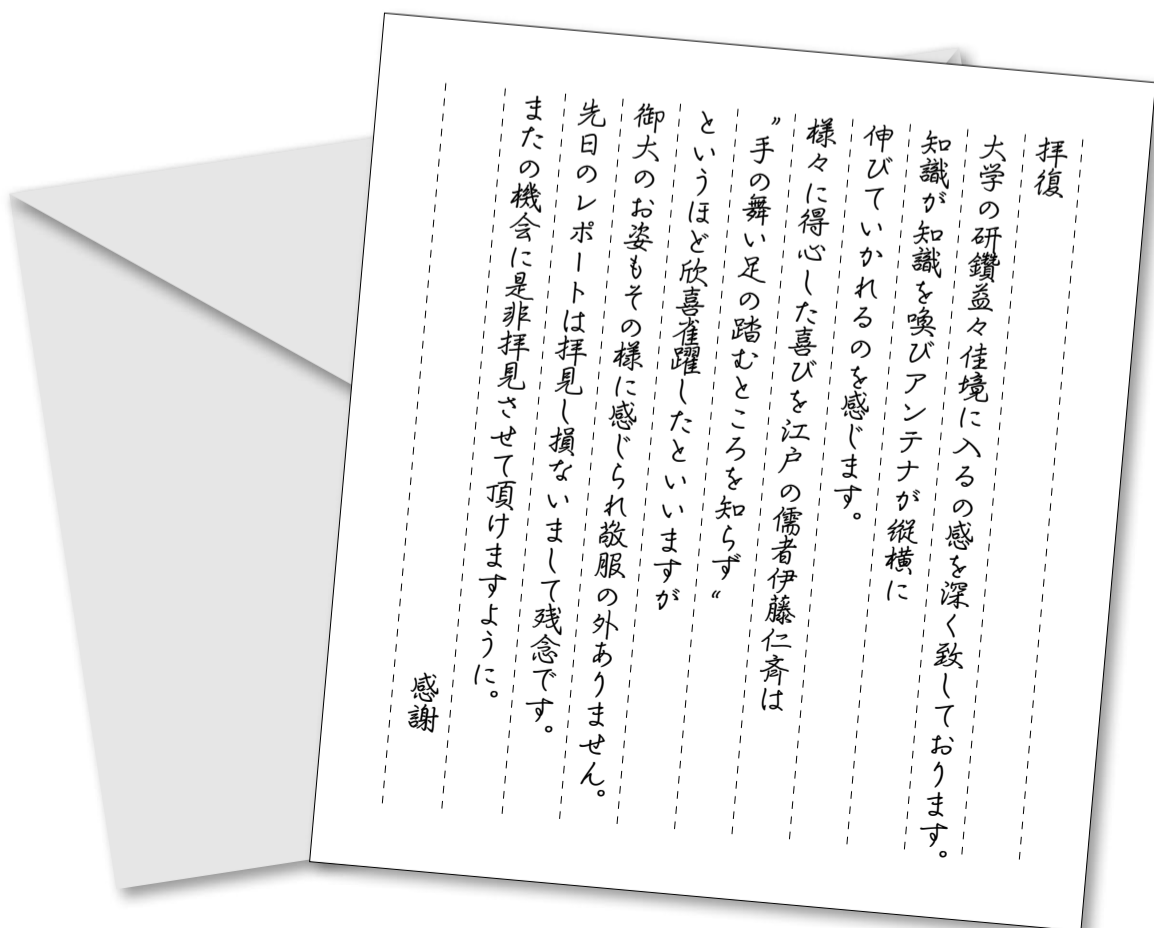 拝復
大学の研鑽益々佳境に入るの感を深く致しております。
知識が知識を喚びアンテナが縦横に
伸びていかれるのを感じます。
様々に得心した喜びを江戸の儒者伊藤仁斉は
〝手の舞い足の踏むところを知らず〟
というほど欣喜雀躍したといいますが
御大のお姿もその様に感じられ敬服の外ありません。
先日のレポートは拝見し損ないまして残念です。
またの機会に是非拝見させて頂けますように。
感謝